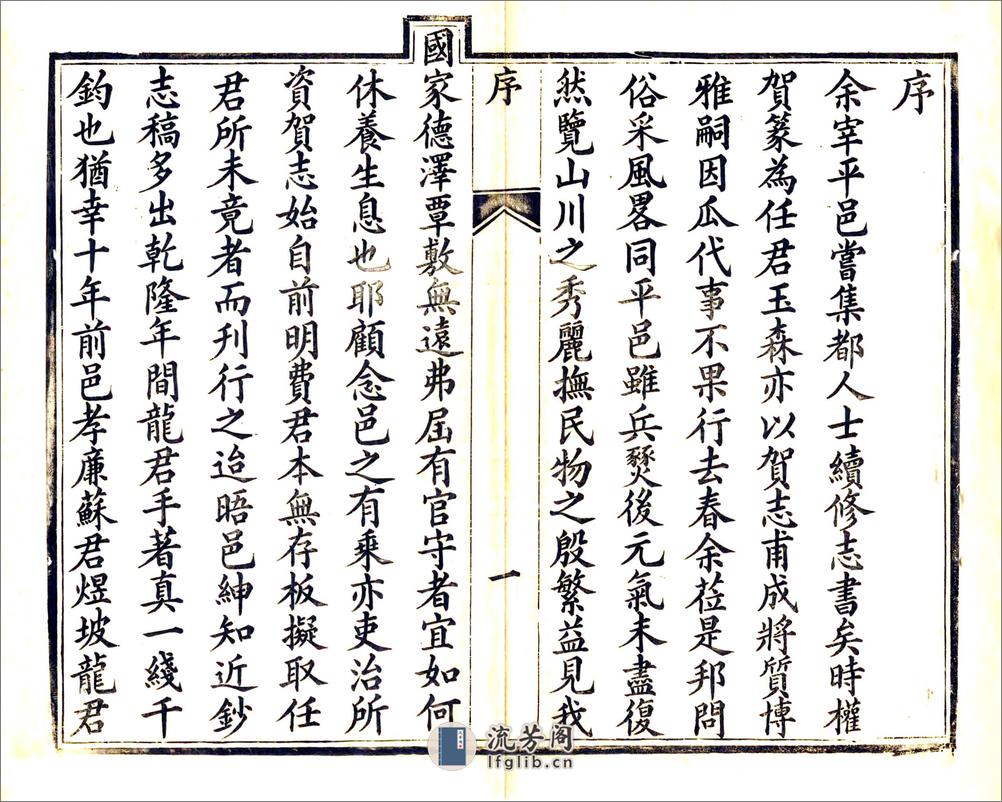 序
余宰平邑嘗集都人士續修志書矣時權
賀篆為任君玉森亦以賀志甫成將質博
雅嗣因瓜代事不果行去春余莅是邦問
俗采風畧同平邑雖兵燹後元氣未盡復
然覽山川之秀麗撫民物之殷繁益見我
序
一
國家德澤覃敷無遠弗屆有官守者宜如何
休養生息也耶顧念邑之有乘亦吏治所
資賀志始自前明費君本無存板擬取任
君所未竟者而刊行之迨晤邑紳知近鈔
志稿多出乾隆年間龍君手著真一綫千
鈞也猶幸十年前邑孝廉蘇君煜坡龍君
流芳阁
lfglib.cn